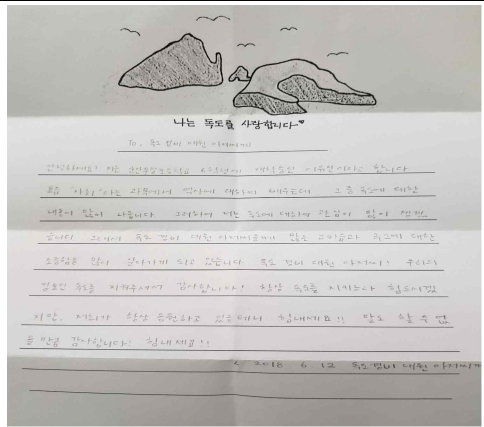 나는 독도를 사랑합니다~♥
To. 독도 경비 대원 아저씨께
안녕하세요? 저는 6학년에 재학중인 이라고 합니다
요즘 '사회'라는 과목에서 역사에 대하여 배우는데 그 중 독도에 대한
내용이 많이 나옵니다 그리하여 저는 독도에 대하여 관심이 많이 생겼
습니다 그래서 독도 경비 대원 아저씨들에게 많은 고마움과 독도에 대한
소중함을 많이 알아가게 되고 있습니다 독도 경비 대원 아저씨! 우리의
독도를 지켜주셔서 감사합니다! 항상 독도를 지키느라 힘드시겠
지만, 저희가 항상 응원하고 있을테니 힘내세요!! 말로 할 수 없
을 만큼 감사합니다! 힘내세요!!
2018 6 12 독도경비 대원 아저씨께